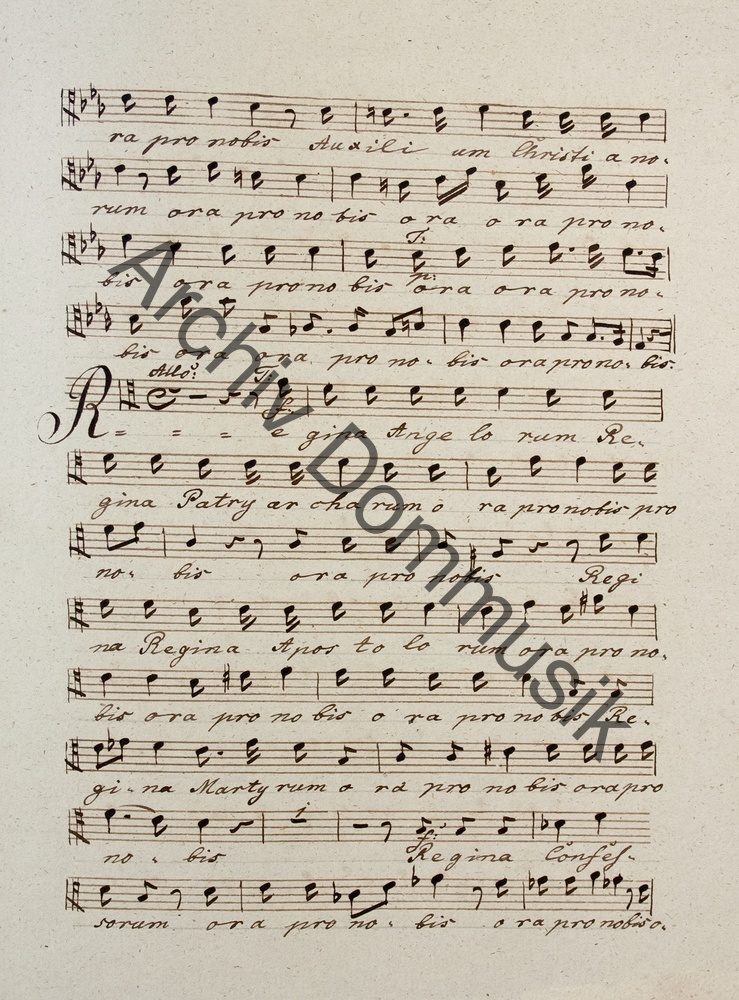 ra pro nobis Auxili um Christi a no-
rum ora pro no bis o ra o ra pro no-
T:
bis ora pro no bis ora ora pro no-
p:
bis ora ora pro no- bis ora pro no- bis:
Allo: T:
f:
R = = = e gina Ange lo rum Re-
gina Patry ar cha rum o ra pro nobis pro
no- bis ora pro nobis Regi
na Regina Apos to lo rum ora pro no-
bis ora pro no bis o ra pro no bis Re-
gi- na Marty rum o ra pro no bis ora pro
1
f:
no - bis Regina Confes-
sorum ora pro no- bis o ra pro nobis o-
Archiv Dommusik